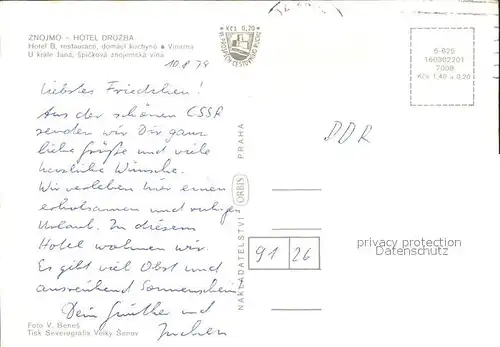 ZNOJMO - HOTEL DRUŽBA
Hotel B, restaurace, domácí kuchyně • Vinárna
U krále Jana, špičková znojemská vína
Kčs 0,20
VE PROSPĚCH CESTOVNÍHO RUCHU
6-625
160302201
7008
Kčs 1,40 + 0,20
10.8.79
Liebstes Friedchen!
Aus der schönen CSSR
senden wir Dir ganz
liebe Grüße und viele
herzliche Wünsche.
Wir verleben hier einen
erholsamen und ruhigen
Urlaub. In diesem
Hotel wohnen wir.
Es gibt viel Obst und
ausreichend Sonnenschein
Dein Günther und
Jochen
DDR
NAKLADATELSTVÍ ORBIS PRAHA
91 26
privacy protection
Datenschutz
Foto V. Beneš
Tisk Severografia Velký Šenov